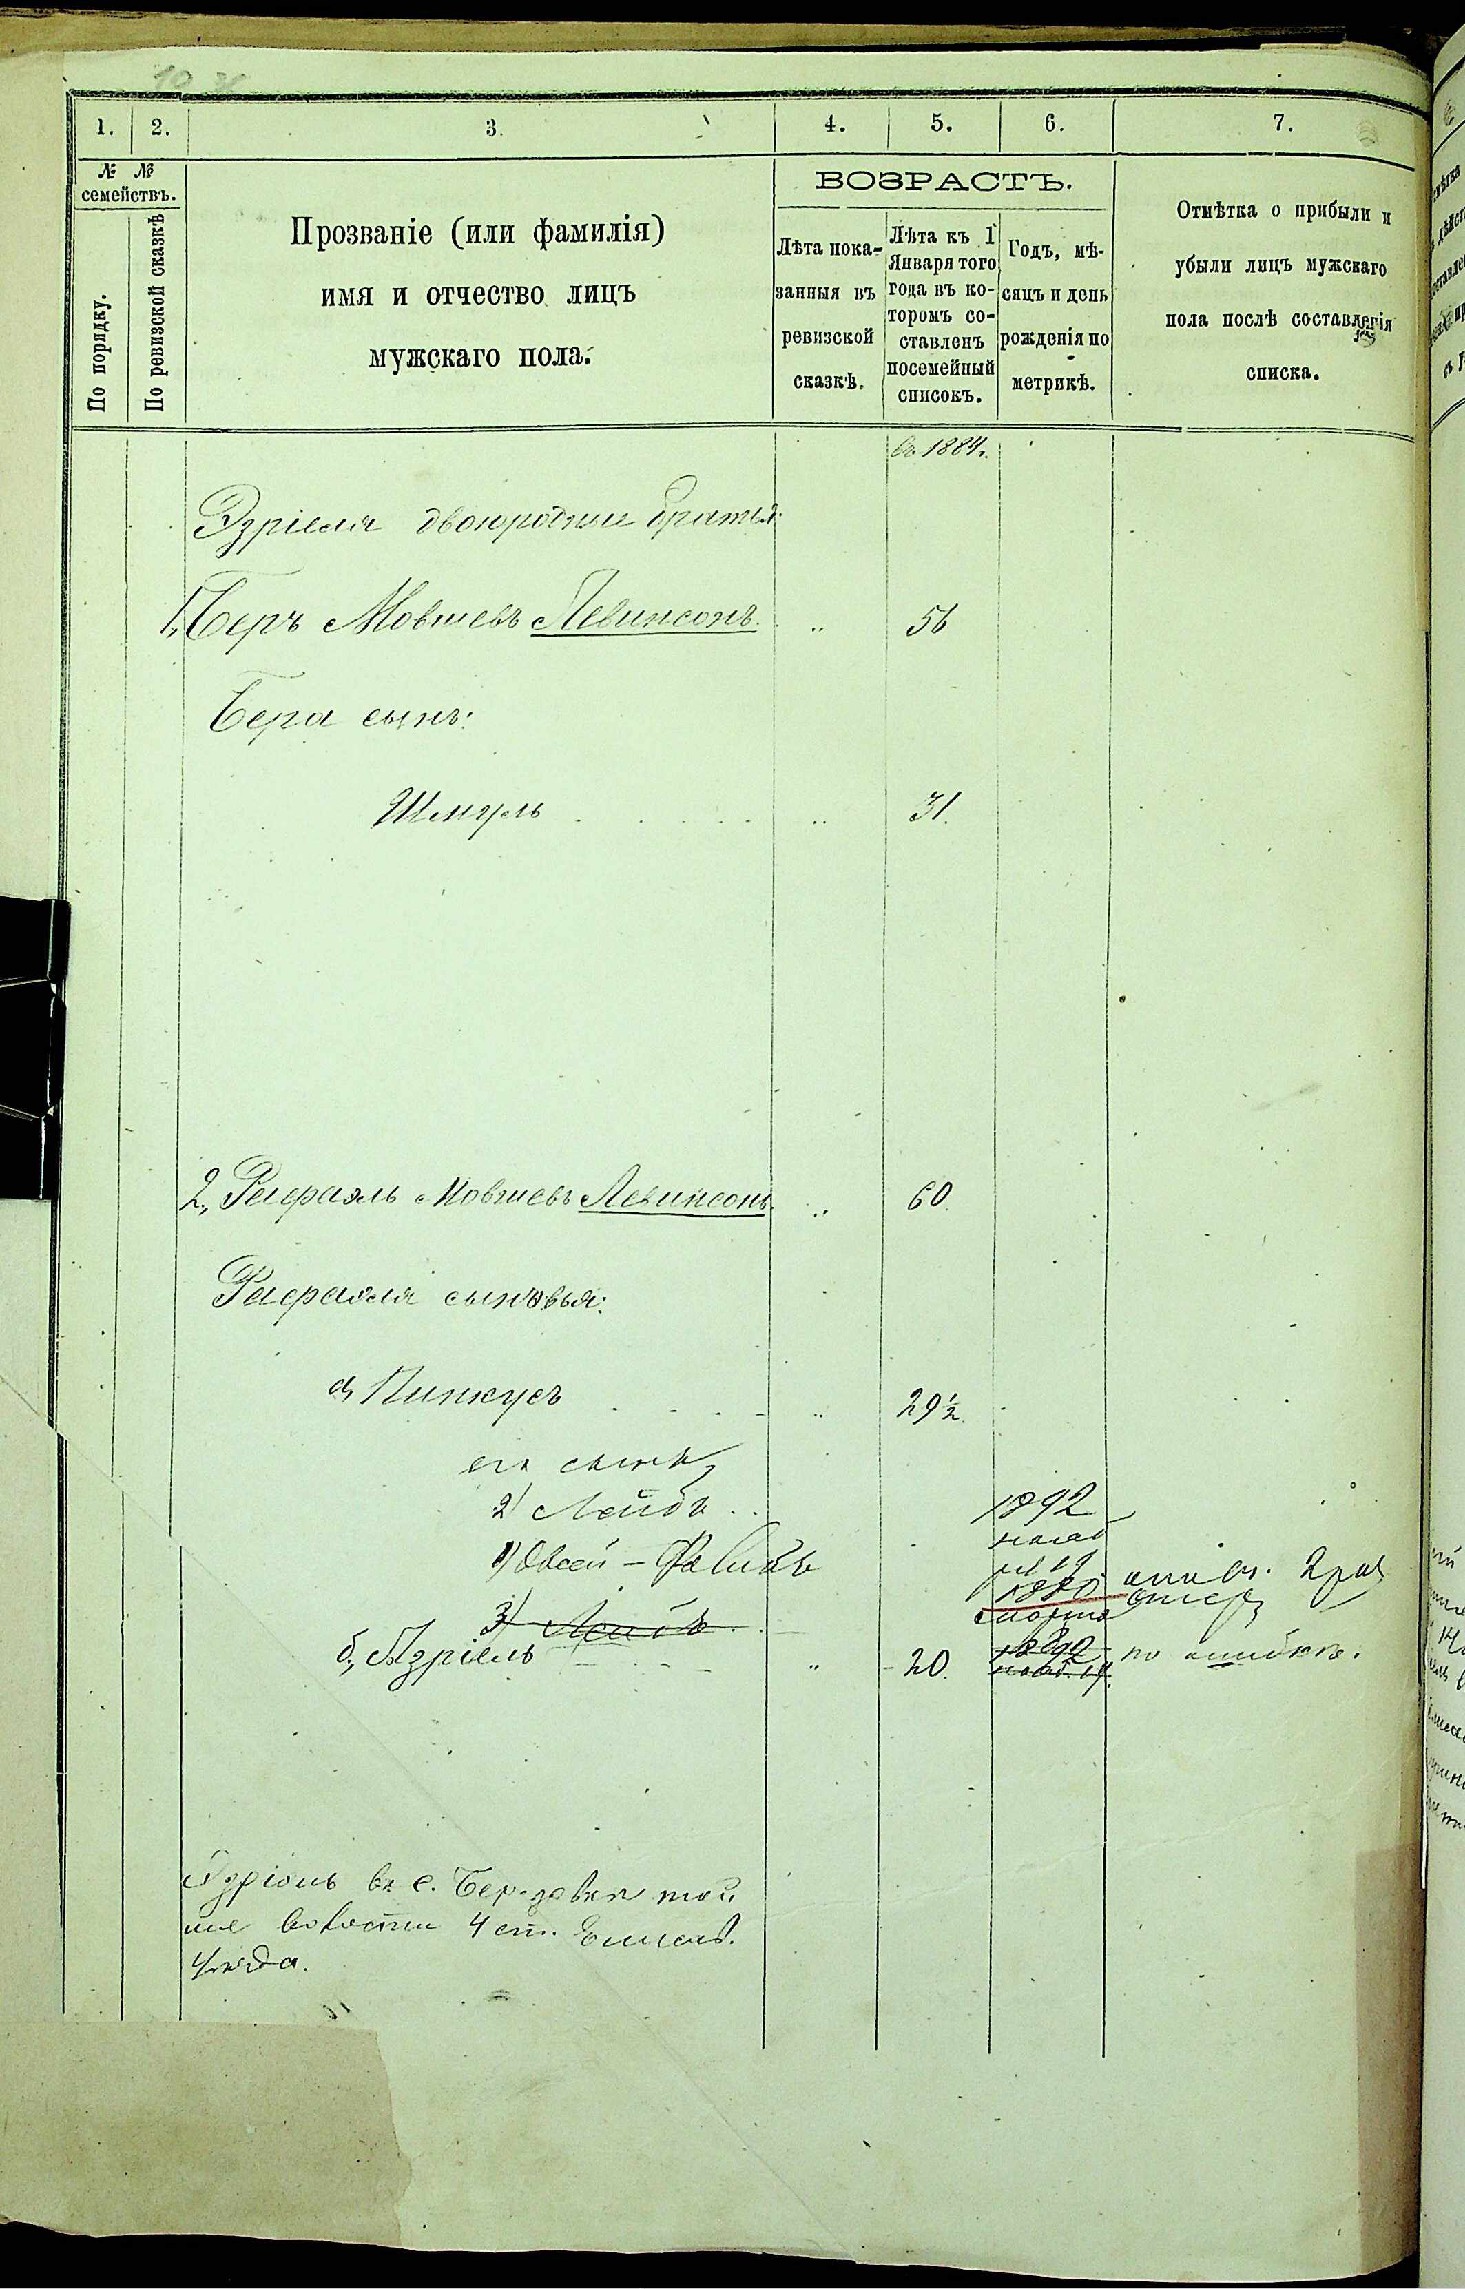 1. 2. 3. 4. 5. 6. 7.
№ №
семействъ.
По порядку.
По ревизской сказкѣ
Прозваніе (или фамилія)
имя и отчество лицъ
мужскаго пола.
ВОЗРАСТЪ.
Лѣта пока-
занныя въ
ревизской
сказкѣ.
Лѣта къ 1
Января того
года въ ко-
торомъ со-
ставленъ
посемейный
списокъ.
Годъ, мѣ-
сяцъ и день
рожденія по
метрикѣ.
Отмѣтка о прибыли и
убыли лицъ мужскаго
пола послѣ составленія
списка.
въ 1884.
Эзріеля двоюродные братья:
1, Беръ Мовшевъ Левинсонъ. „ 56
Бера сынъ:
Шмуль „ 31.
2, Рафаэль Мовшевъ Левинсонъ. „ 60.
Рафаэля сыновья:
а, Пинкусъ „ 29½.
его сыны
2) Лейбъ 1892
1) Овсей-
3) Лейбъ 1892
б, Азріель „ 20. по ошибкѣ.
въ с. той
же волости 4 ст.
уѣзда.